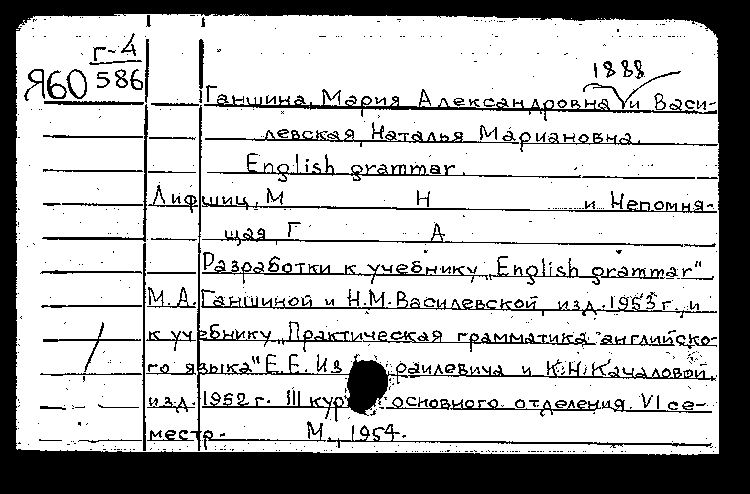 Г-4
Я60 586
1888
Ганшина, Мария Александровна и Васи-
левская, Наталья Мариановна.
English grammar.
Лифшиц, М Н и Непомня-
щая, Г А
Разработки к учебнику „English grammar"
М.А. Ганшиной и Н.М. Василевской, изд. 1953 г., и
к учебнику „Практическая грамматика английско-
го языка" Е.Е. Из раилевича и К.Н. Качаловой,
изд. 1952 г. III кур основного отделения. VI се-
местр. М., 1954.